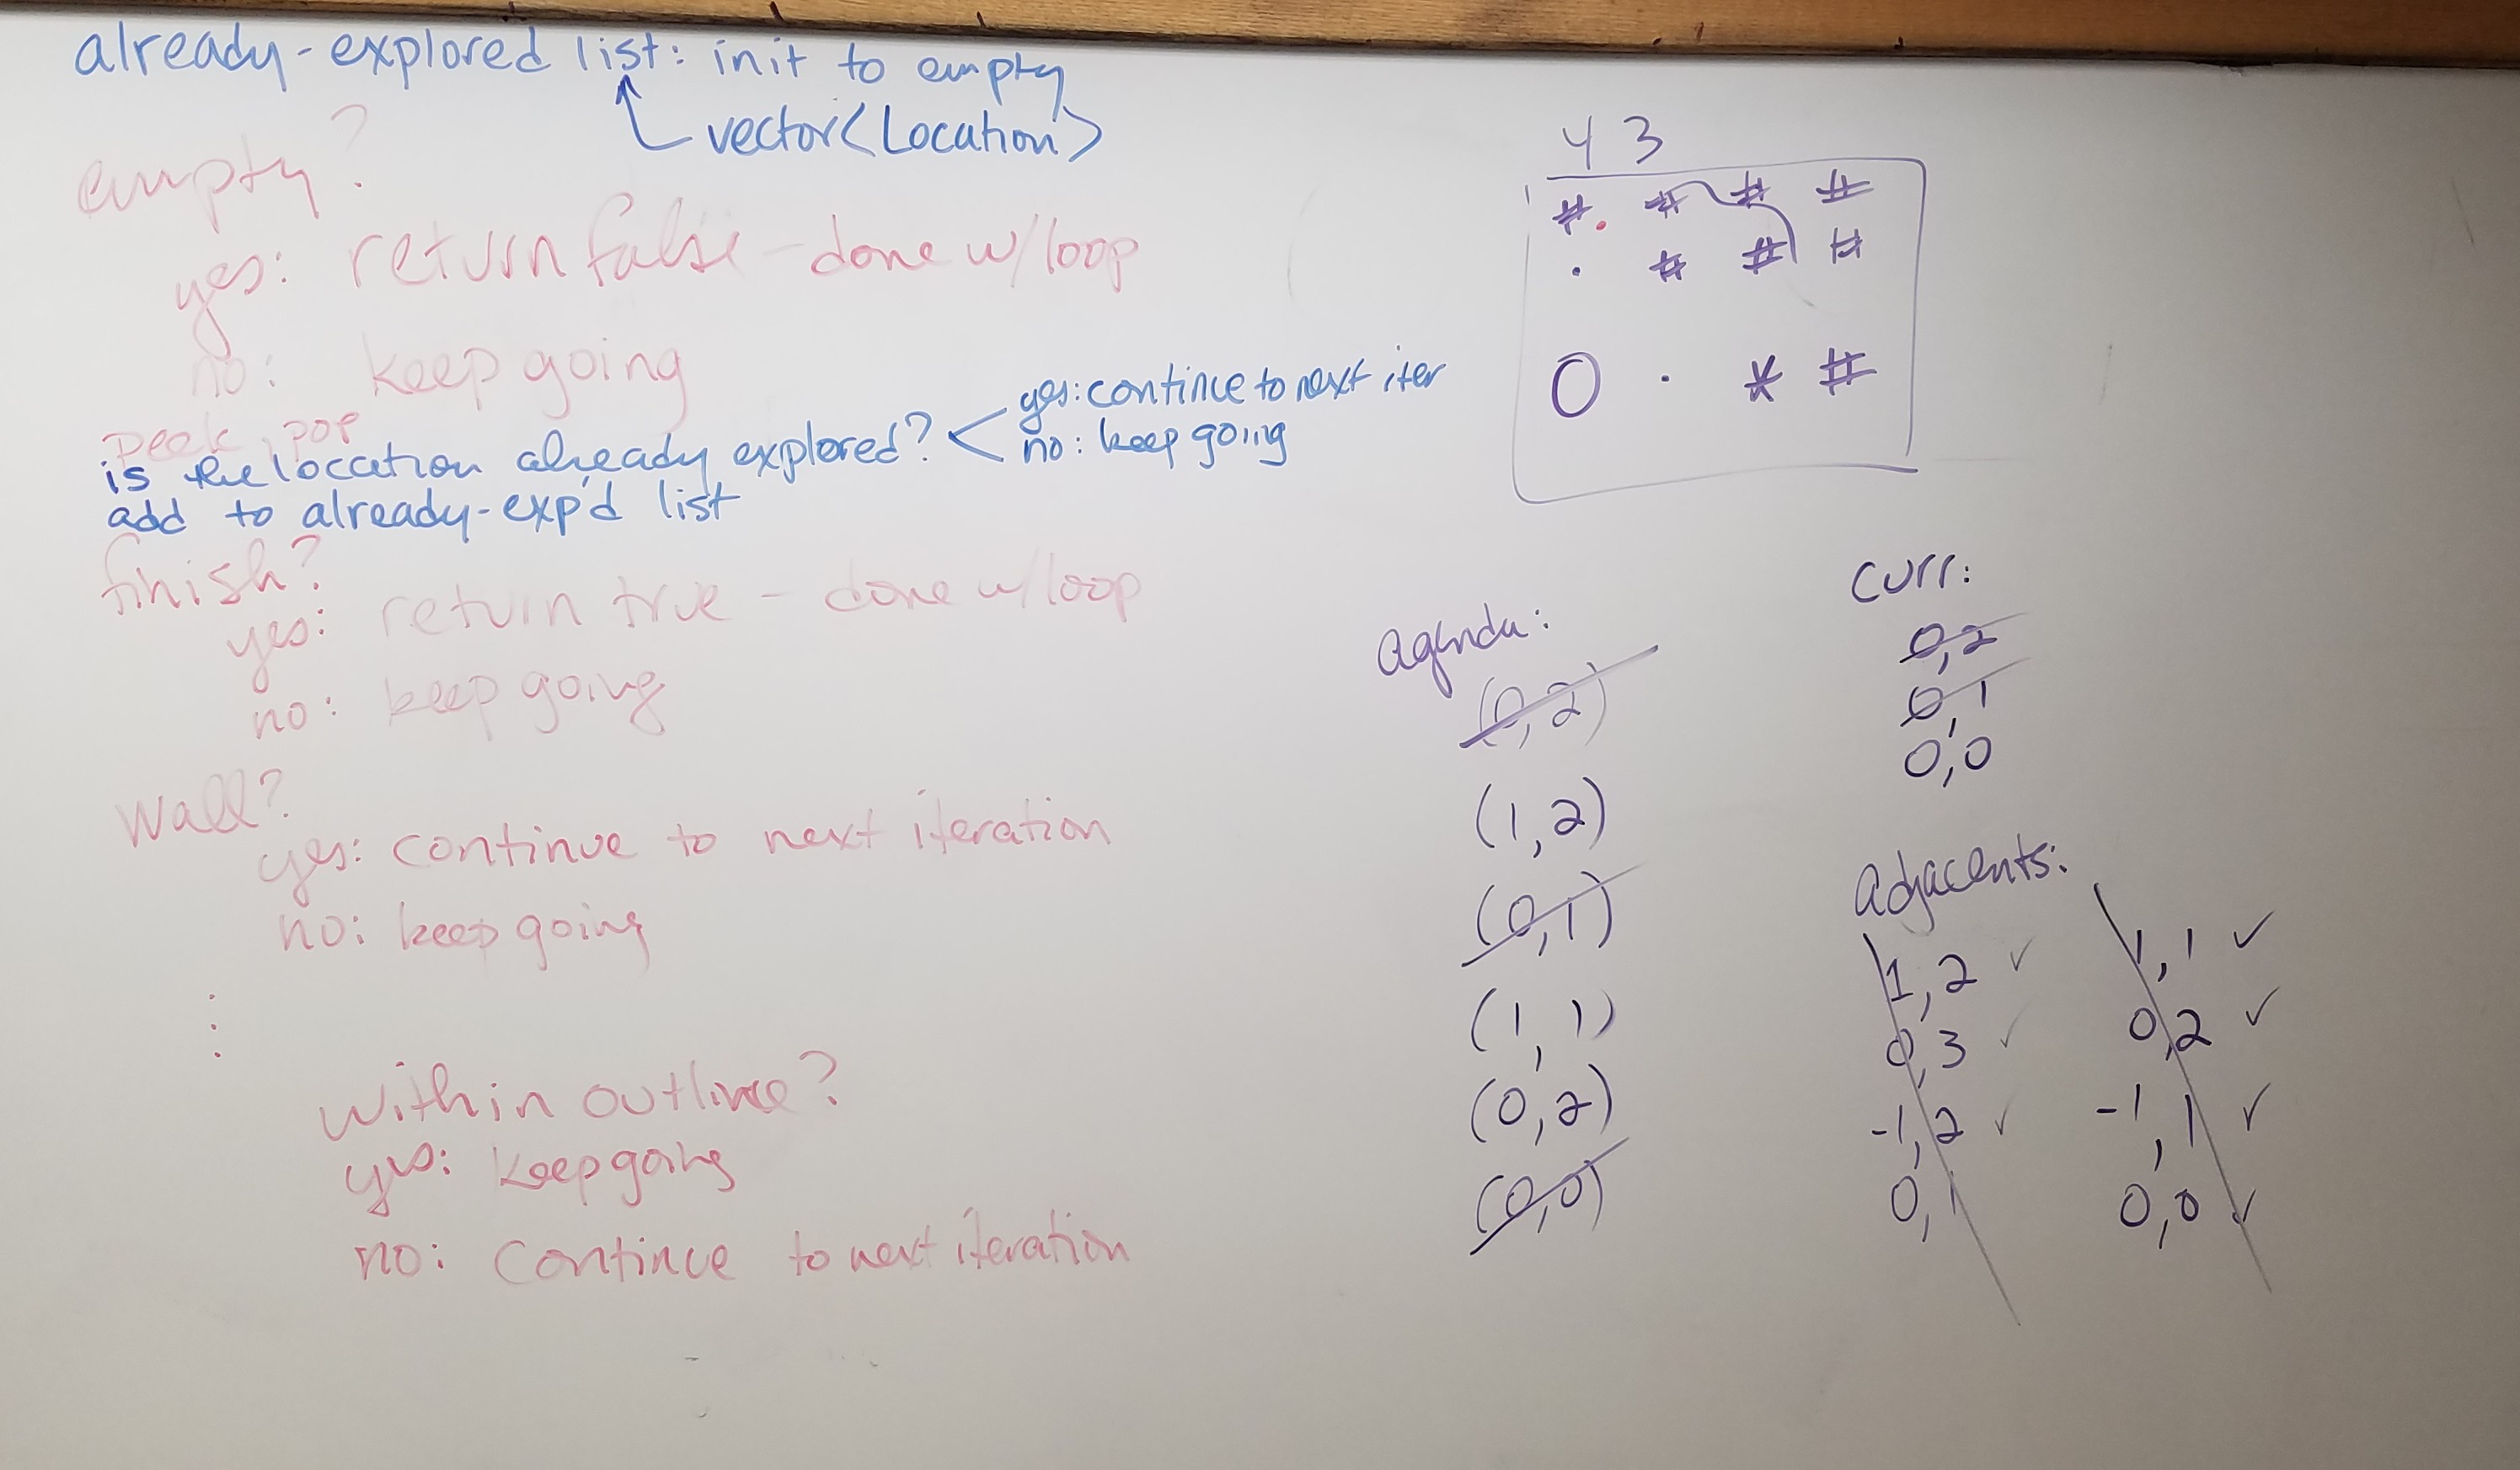 already-explored list: init to empty
vector<Location>
empty?
yes: return false - done w/loop
no: keep going
peek, pop
is the location already explored? < yes: continue to next iter
no: keep going
add to already-exp'd list
finish?
yes: return true - done w/loop
no: keep going
Wall?
yes: continue to next iteration
no: keep going
within outline?
yes: keep going
no: continue to next iteration
4 3
#. # # #
. # # #
O . * #
agenda:
(0,2)
(1,2)
(0,1)
(1,1)
(0,2)
(0,0)
curr:
0,2
0,1
0,0
Adjacents:
1,2 ✓
0,3 ✓
-1,2 ✓
0,1
1,1 ✓
0,2 ✓
-1,1 ✓
0,0 ✓